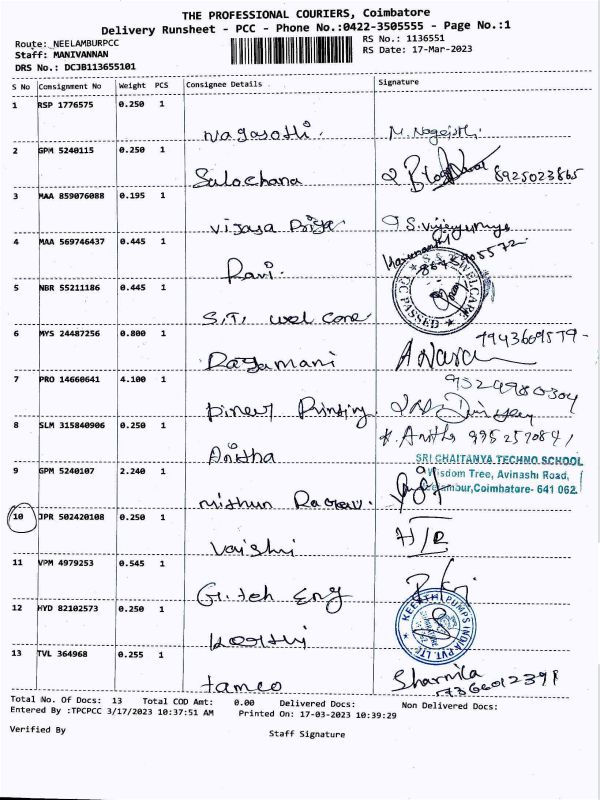 THE PROFESSIONAL COURIERS, Coimbatore
Delivery Runsheet - PCC - Phone No.:0422-3505555 - Page No.:1
Route: NEELAMBURPCC
Staff: MANIVANNAN
DRS No.: DCJB113655101
RS No.: 1136551
RS Date: 17-Mar-2023
S No Consignment No Weight PCS Consignee Details Signature
1 RSP 1776575 0.250 1
Nagajothi. M. Nagajothi
2 GPM 5240115 0.250 1
Sulochana 8925023865
3 MAA 859076088 0.195 1
Vijaya Priya
4 MAA 569746437 0.445 1
Ravi.
5 NBR 55211186 0.445 1
S.T. wel care
QC PASSED
6 MYS 24487256 0.800 1
Ragamani
7 PRO 14660641 4.100 1
Printing 9524980304
8 SLM 315840906 0.250 1
Anitha K. Anitha
SRI CHAITANYA TECHNO SCHOOL
Wisdom Tree, Avinashi Road,
Coimbatore- 641 062.
9 GPM 5240107 2.240 1
Mithun
10 JPR 502420108 0.250 1
Vaishi H/R
11 VPM 4979253 0.545 1
G.teh Eng
12 HYD 82102573 0.250 1
Keerthi
KEERTHI PUMPS INDIA PVT. LTD.
13 TVL 364968 0.255 1
tamco Sharmila
7366012391
Total No. Of Docs: 13 Total COD Amt: 0.00 Delivered Docs: Non Delivered Docs:
Entered By :TPCPCC 3/17/2023 10:37:51 AM Printed On: 17-03-2023 10:39:29
Verified By Staff Signature